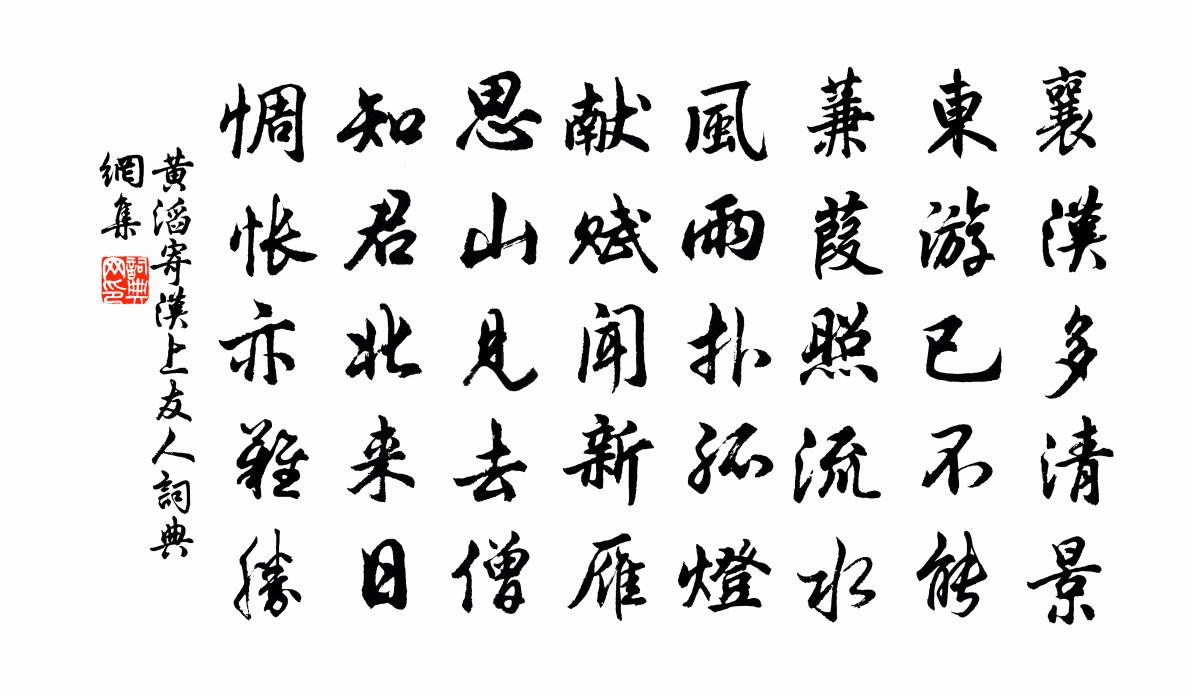 襄漢多清景
東游已不能
蒹葭照流水
風雨扑孤燈
献赋闻新雁
思山見去僧
知君北来日
惆怅亦難勝
黄滔寄漢上友人詞典
網集
詞典
网印